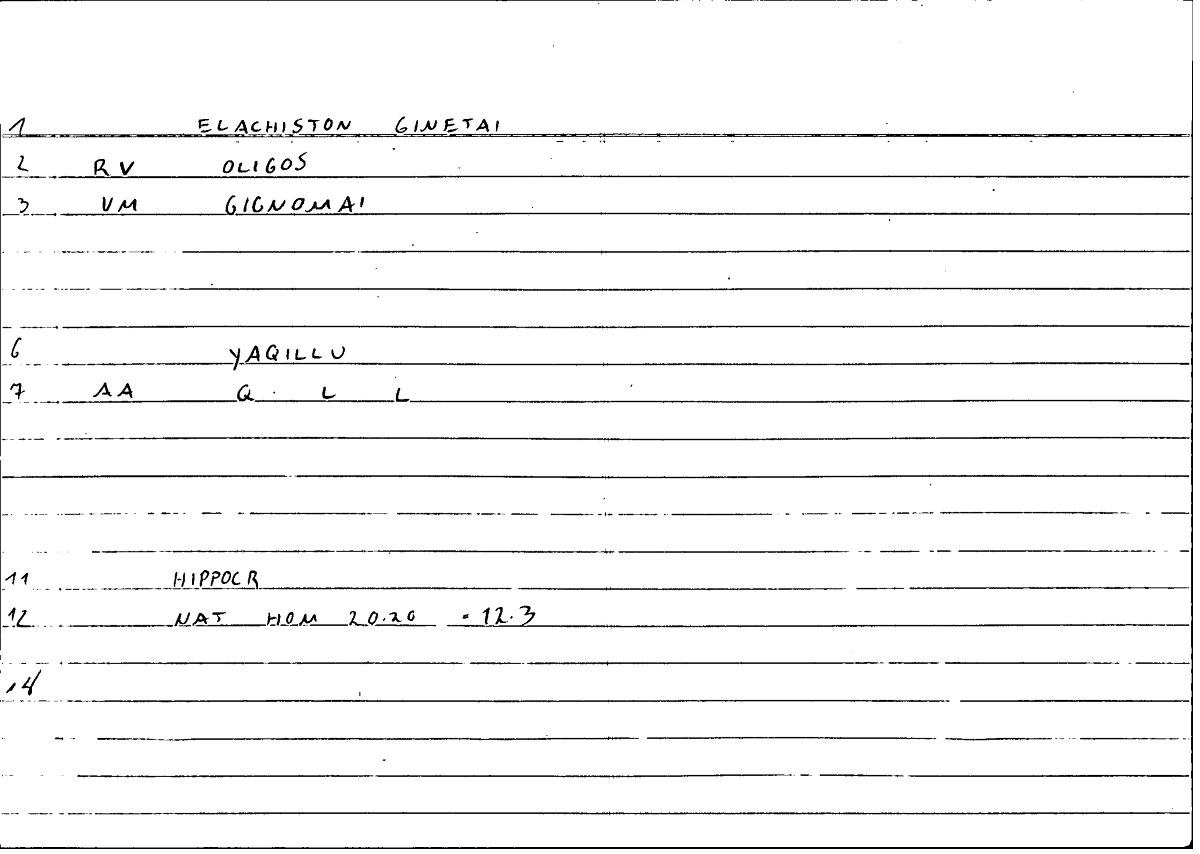 1 ELACHISTON GINETAI
2 RV OLIGOS
3 VM GIGNOMAI
6 YAQILLU
7 AA Q · L L
11 HIPPOCR
12 NAT HOM 20.20 = 12.3
14